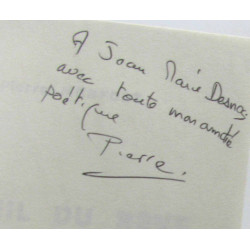 A Jean Marie Desnos,
avec toute mon amitié
poétique
Pierre.